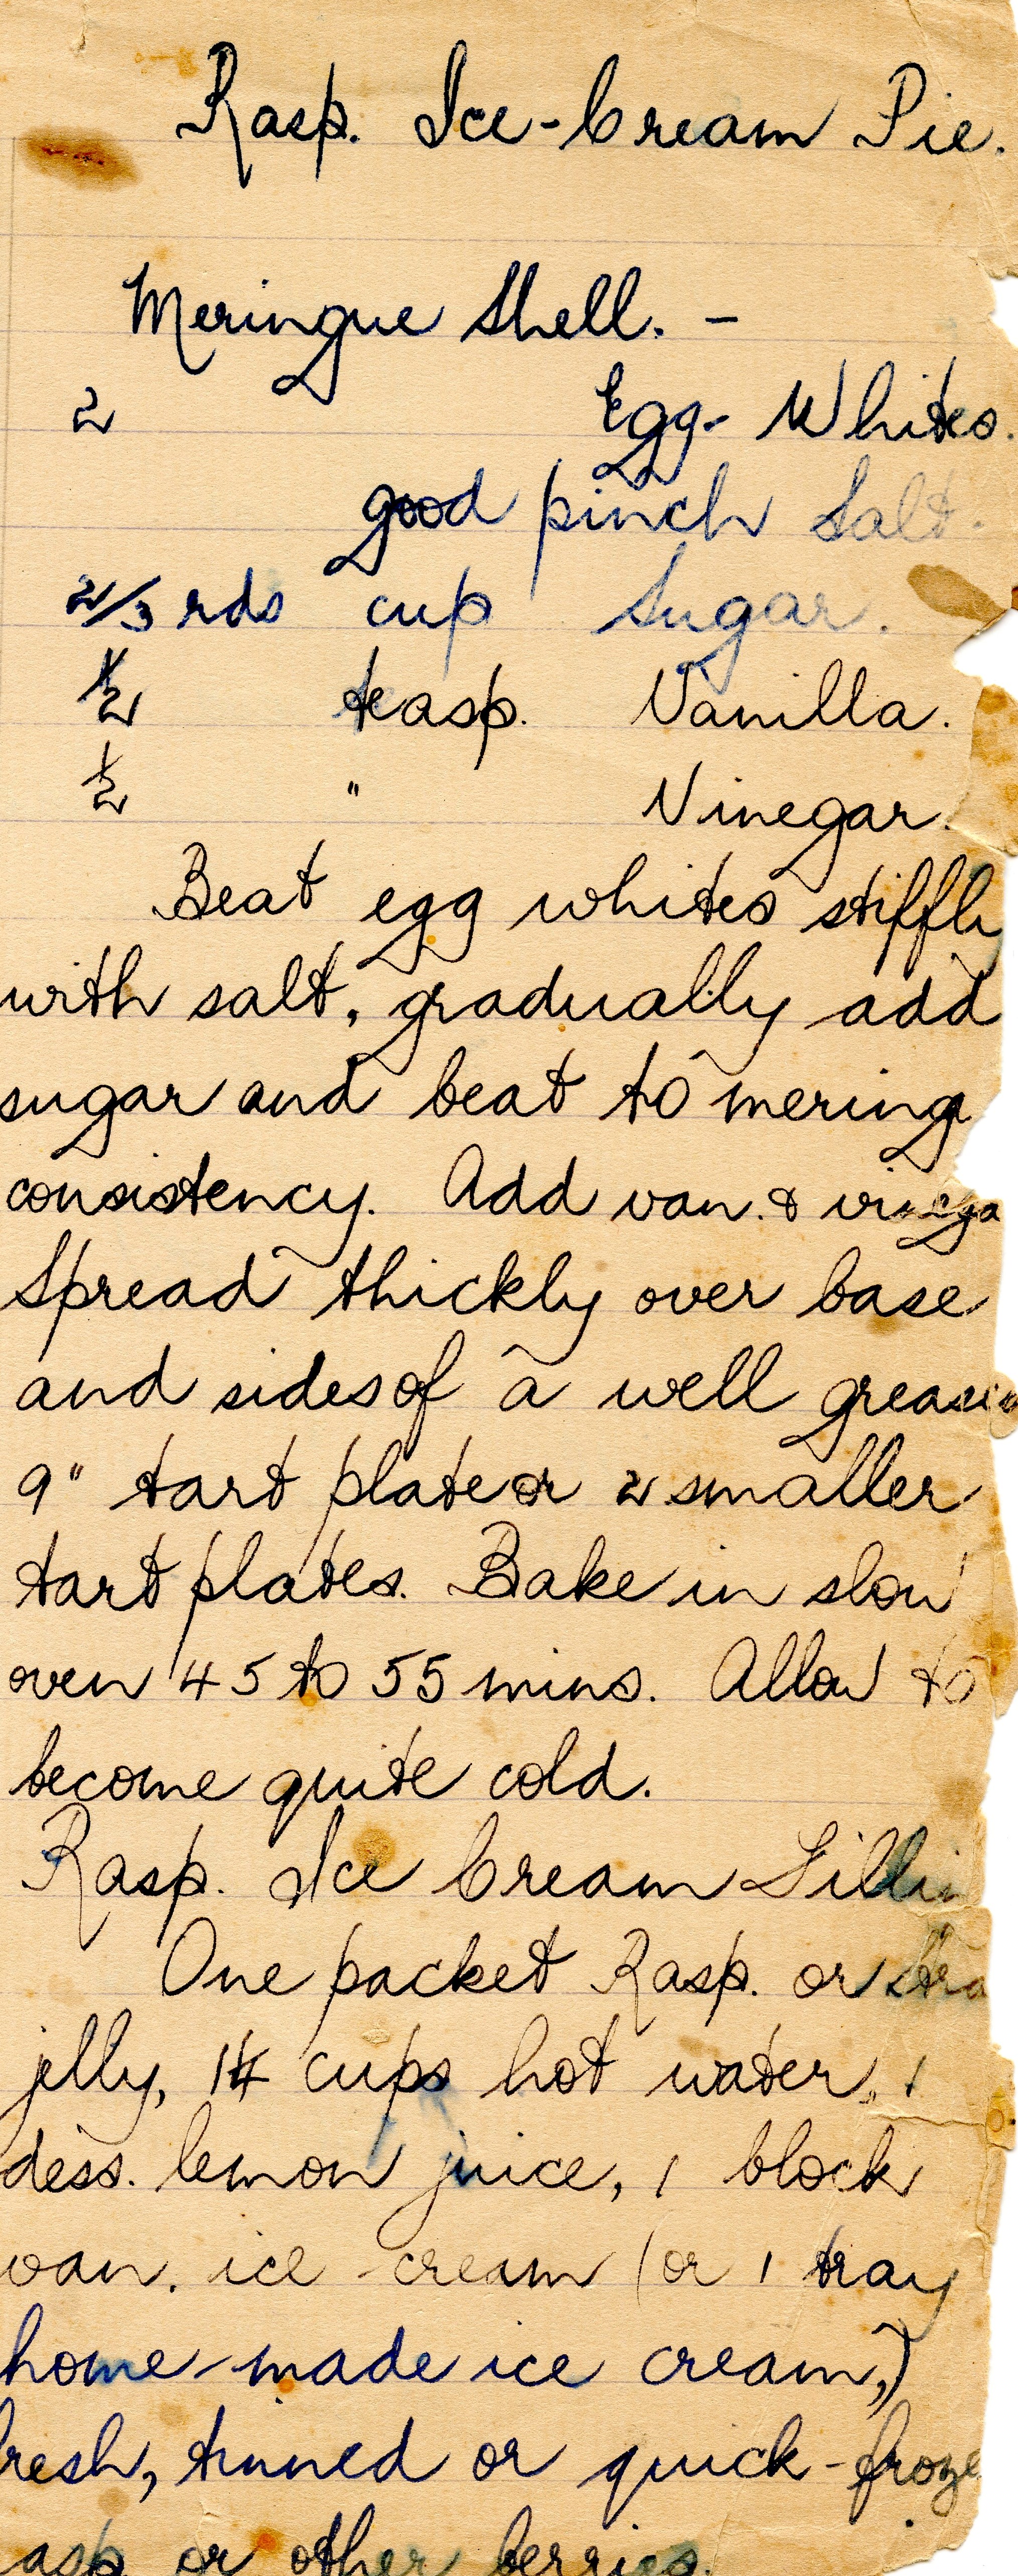 Rasp. Ice-Cream Pie.
Meringue Shell. -
2 Egg-Whites.
good pinch Salt.
2/3 rds cup Sugar.
1/2 teasp. Vanilla.
1/2 " Vinegar.
Beat egg whites stiffly
with salt, gradually add
sugar and beat to mering
consistency. Add van. & vinega
Spread thickly over base
and sides of a well greased
9" tart plate or 2 smaller
tart plates. Bake in slow
oven 45 to 55 mins. Allow to
become quite cold.
Rasp. Ice Cream Fillin
One packet Rasp. or stra
jelly, 1¼ cups hot water, 1
dess. lemon juice, 1 block
van. ice-cream (or 1 tray
home-made ice cream,)
resh, tinned or quick-froze
asp or other berries.